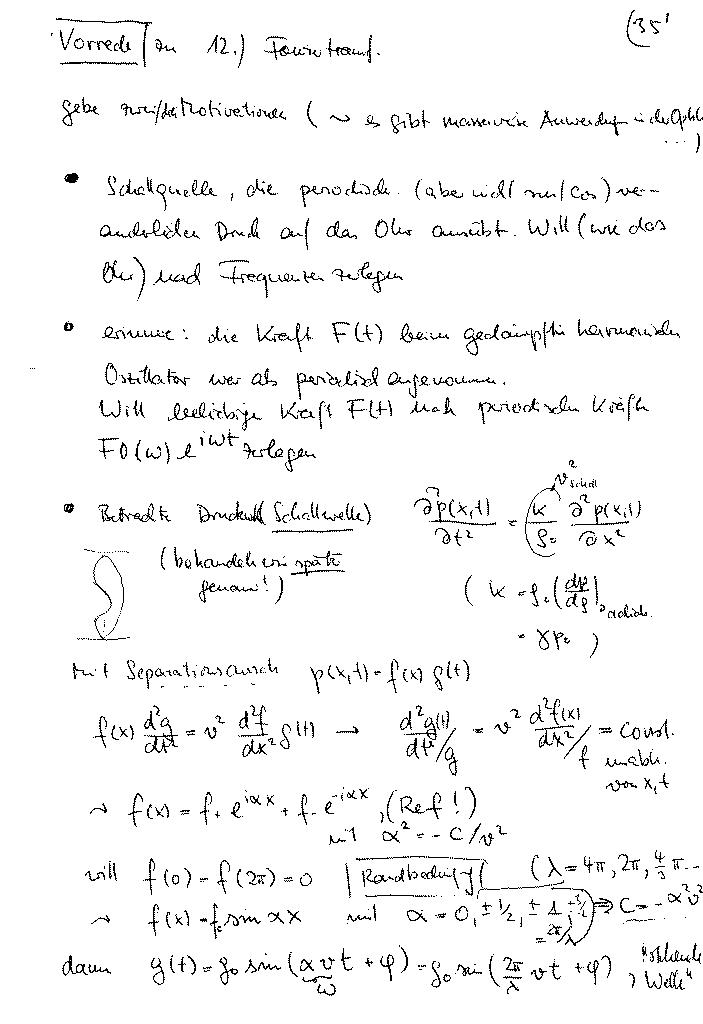 (35'
Vorrede zu 12.) Fouriertransf.
gebe zwei/drei Motivationen ( ~ es gibt massenweise Anwendungen in der Optik
...)
• Schallquelle, die periodisch (aber nicht sin/cos) ver-
änderlichen Druck auf das Ohr ausübt. Will (wie das
Ohr) nach Frequenzen zerlegen
• erinnere: die Kraft F(t) beim gedämpften harmonischen
Oszillator war als periodisch angenommen.
Will beliebige Kraft F(t) nach periodischen Kräften
F0(ω) e^{iωt} zerlegen
• Betrachte Druckwelle (Schallwelle) ∂²p(x,t)/∂t² = κ/ρ₀ ∂²p(x,t)/∂x² v²_Schall
(behandeln wir später
genau!) ( κ = ρ₀ (dp/dρ)|adiab.
= γp₀ )
mit Separationsansatz p(x,t) = f(x) g(t)
f(x) d²g/dt² = v² d²f/dx² g(t) → d²g(t)/dt²/g = v² d²f(x)/dx²/f = const.
unabh.
von x,t
~> f(x) = f₊ e^{iαx} + f₋ e^{-iαx}, (Ref!)
mit α² = -C/v²
will f(0) = f(2π) = 0 | Randbedingung | (λ = 4π, 2π, 4/3 π...
~> f(x) = f₀ sin αx mit α = 0, ±1/2, ±1, ±3/2 ⇒ C = -α²v²
= 2π/λ
dann g(t) = g₀ sin(αvt + φ) = g₀ sin(2π/λ vt + φ) , "stehende
ω Welle"